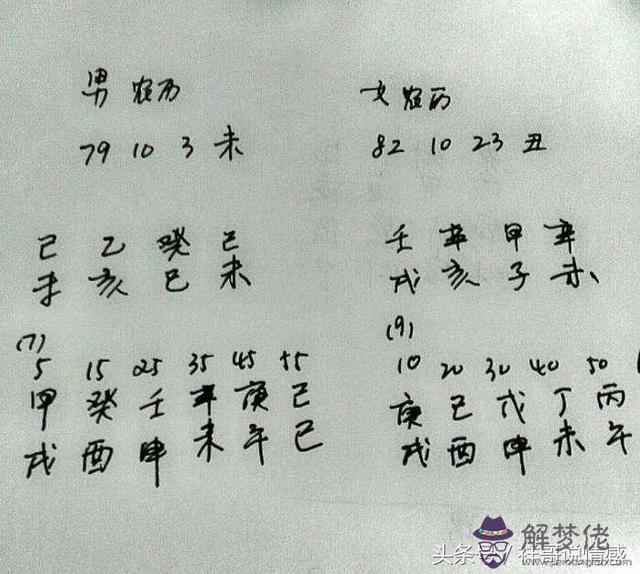 男 农历
79 10 3 未
己 乙 癸 己
未 亥 巳 未
(7)
5 15 25 35 45 55
甲 癸 壬 辛 庚 己
戌 酉 申 未 午 巳
女 农历
82 10 23 丑
壬 辛 甲 辛
戌 亥 子 未
(9)
10 20 30 40 50
庚 己 戊 丁 丙
戌 酉 申 未 午
解梦佬
头条号
佳哥说情感